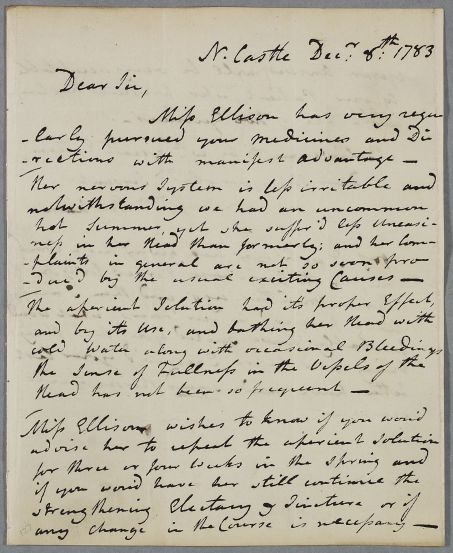 N. Castle Decr. 8th: 1783
Dear Sir,
Miss Ellison has very regu
-larly pursued your Medicines and Di
-rections with manifest advantage —
Her nervous System is less irritable and
notwithstanding we had an uncommon
hot Summer, yet she suffer'd less Uneasi-
ness in her Head than formerly; and her Com-
-plaints in general are not so soon pro-
-duc'd by the usual exciting Causes —
The aperient Solution had its proper Effect,
and by its Use, and bathing her Head with
cold Water along with occasional Bleedings
the Sense of Fullness in the Vessels of the
Head has not been so frequent —
Miss Ellison wishes to know if you wou'd
advise her to repeat the aperient Solution
for three or four Weeks in the Spring and
if you wou'd have her still continue the
strengthening Electary & Tincture or if
any change in the Course is necessary —